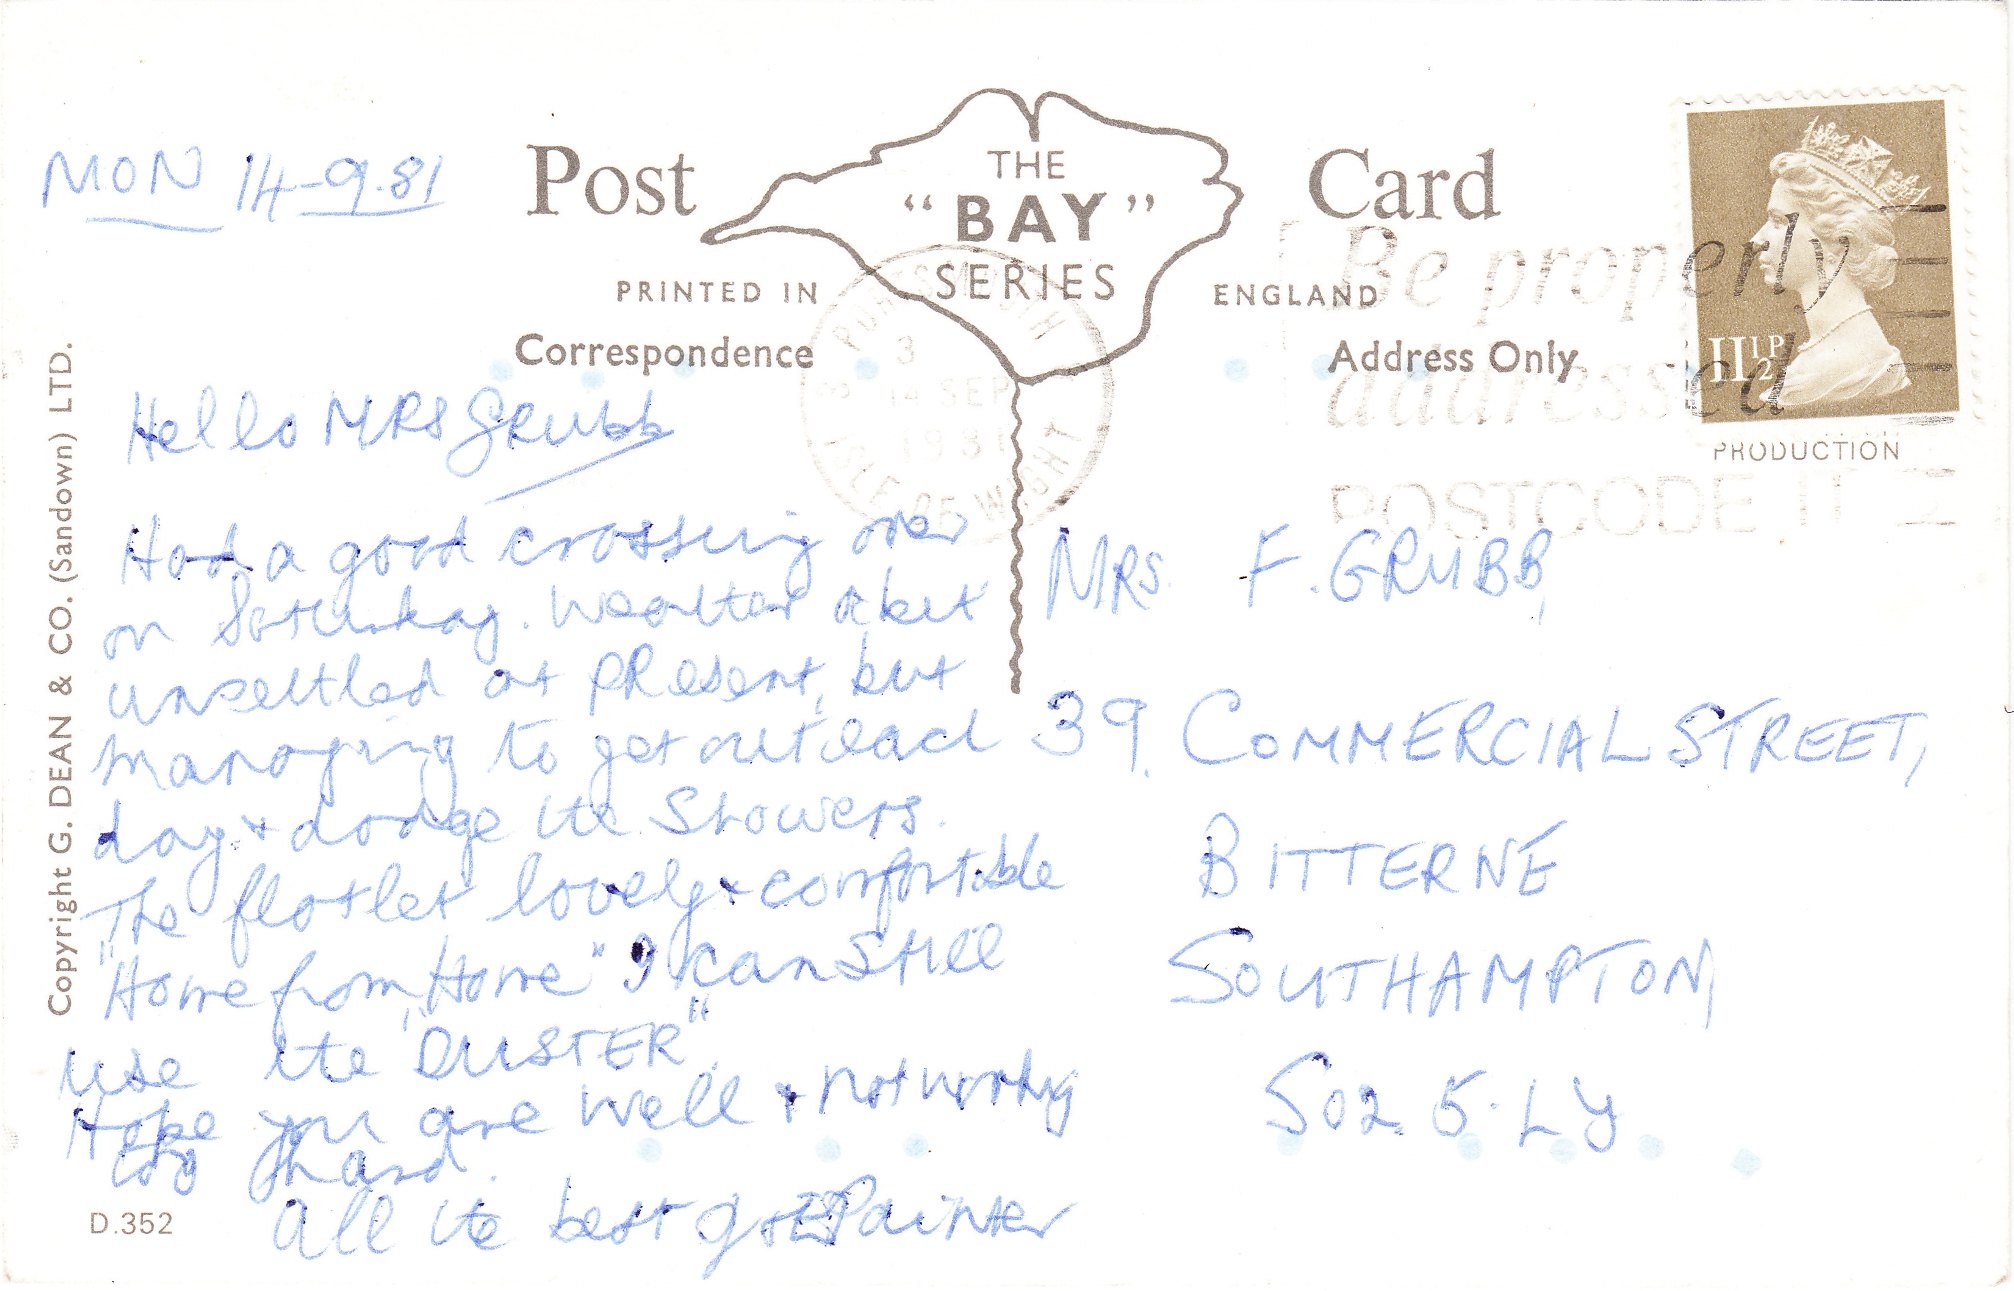 MON 14-9.81
Post Card
THE
"BAY"
SERIES
PRINTED IN ENGLAND
Correspondence
Address Only
PORTSMOUTH
3
14 SEP
1981
ISLE OF WIGHT
Be properly
addressed
POSTCODE IT
11½P
PRODUCTION
Copyright G. DEAN & CO. (Sandown) LTD.
Hello MRS Grubb
Had a good crossing over
on Saturday. Weather a bit
unsettled at present, but
managing to get out each
day + dodge the Showers.
The flatlet lovely + comfortable
"Home from Home" I can still
use the "DUSTER".
Hope you are well + not working
too hard.
All the best Painter
D.352
MRS. F. GRUBB,
39. COMMERCIAL STREET,
BITTERNE
SOUTHAMPTON,
SO2 5.LY